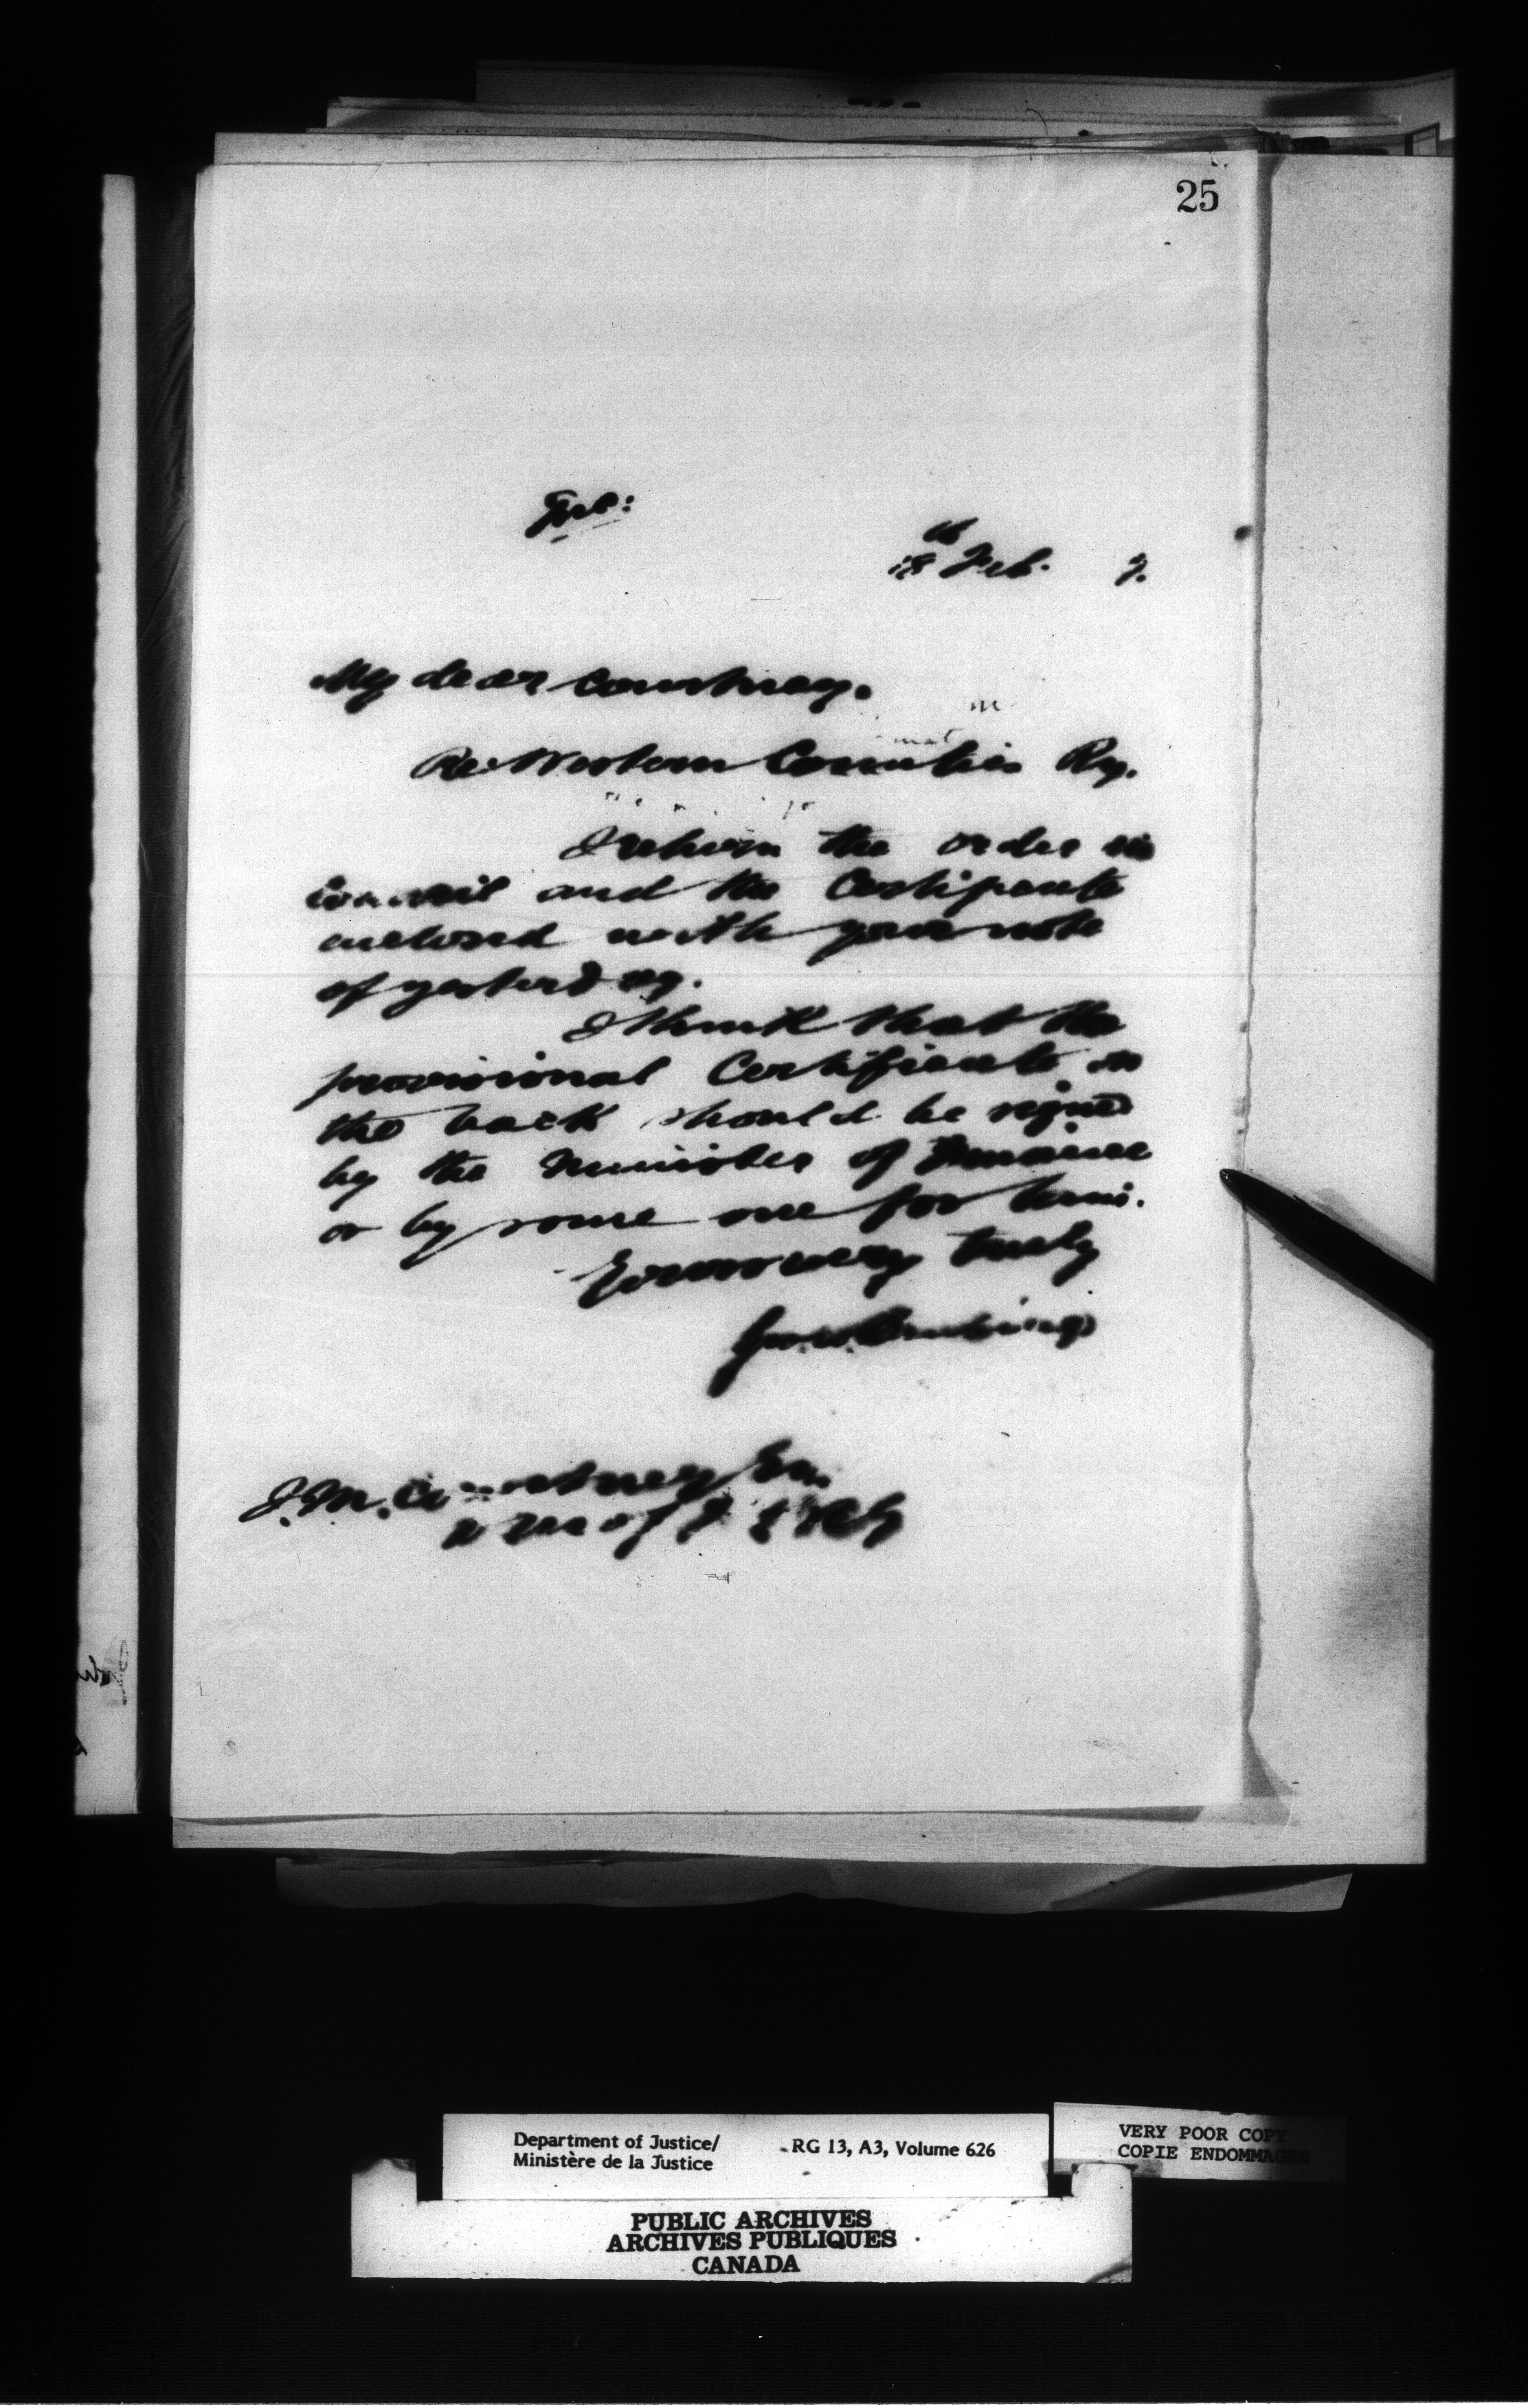 25
18th Feb. 7.
My dear Courtney.
Re Western Counties Ry.
I return the order in
Council and the Certificate
enclosed with your note
of yesterday.
I think that the
provisional Certificate on
the back should be signed
by the Minister of Finance
or by some one for him.
Yours very truly
Geo. W. Burbidge
J. M. Courtney Esq.
D M of F
Department of Justice/
Ministère de la Justice
RG 13, A3, Volume 626
VERY POOR COPY
COPIE ENDOMMAGEE
PUBLIC ARCHIVES
ARCHIVES PUBLIQUES
CANADA